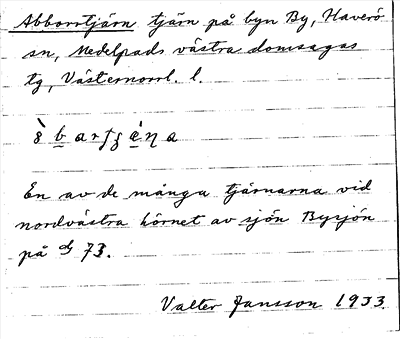 Abborrtjärn tjärn på byn By, Haverö
sn, Medelpads västra domsagas
tg, Västernorrl. l.
En av de många tjärnarna vid
nordvästra hörnet av sjön Bysjön
på 73.
Valter Jansson 1933.